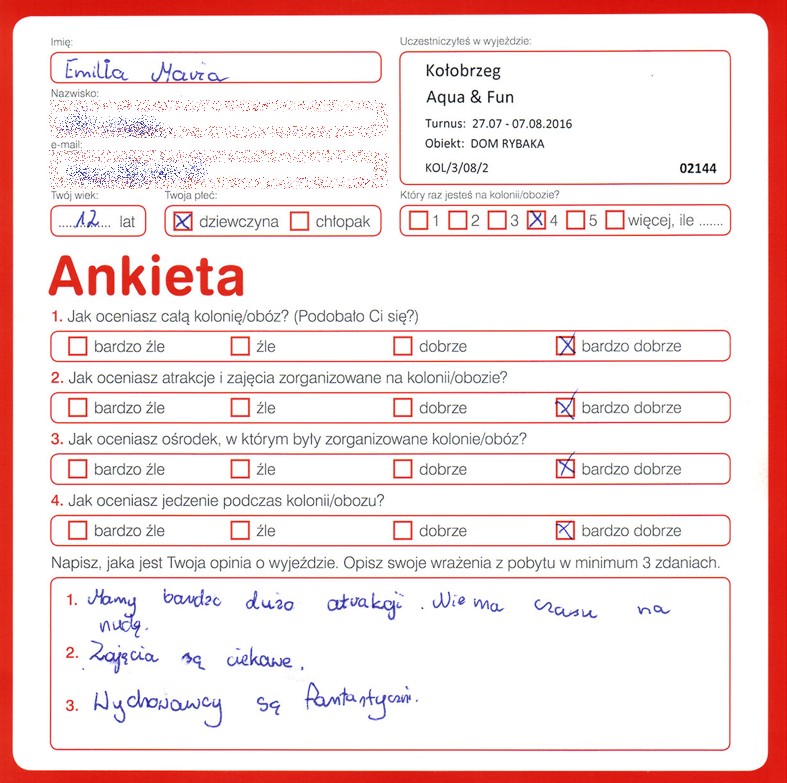 Imię:
Emilia Maria
Nazwisko:
e-mail:
Twój wiek:
....12.... lat
Twoja płeć:
dziewczyna chłopak
Uczestniczyłeś w wyjeździe:
Kołobrzeg
Aqua & Fun
Turnus: 27.07 - 07.08.2016
Obiekt: DOM RYBAKA
KOL/3/08/2 02144
Który raz jesteś na kolonii/obozie?
1 2 3 4 5 więcej, ile .......
Ankieta
1. Jak oceniasz całą kolonię/obóz? (Podobało Ci się?)
bardzo źle źle dobrze bardzo dobrze
2. Jak oceniasz atrakcje i zajęcia zorganizowane na kolonii/obozie?
bardzo źle źle dobrze bardzo dobrze
3. Jak oceniasz ośrodek, w którym były zorganizowane kolonie/obóz?
bardzo źle źle dobrze bardzo dobrze
4. Jak oceniasz jedzenie podczas kolonii/obozu?
bardzo źle źle dobrze bardzo dobrze
Napisz, jaka jest Twoja opinia o wyjeździe. Opisz swoje wrażenia z pobytu w minimum 3 zdaniach.
1. Mamy bardzo dużo atrakcji. Nie ma czasu na
nudę.
2. Zajęcia są ciekawe.
3. Wychowawcy są fantastyczni.